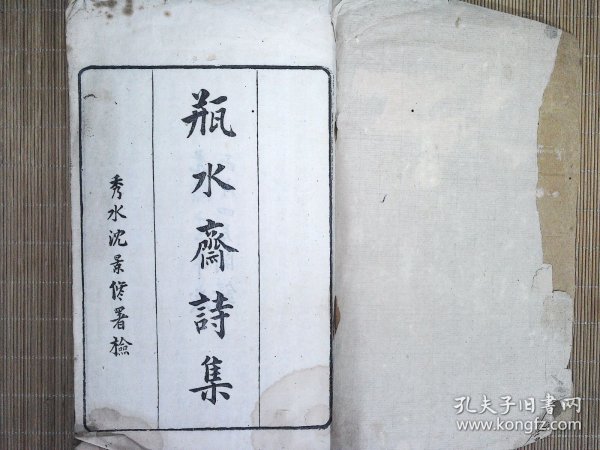 瓶水齋詩集
秀水沈景修署檢
孔夫子旧书网
www.kongfz.com